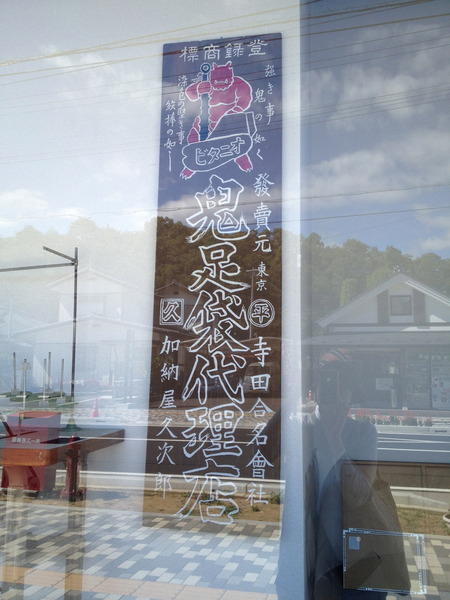 標商録登
強き事
鬼の如く
染色の堅き事
鉄棒の如し
ビタニオ
發賣元 東京 平 寺田合名會社
鬼足袋代理店
久 加納屋久次郎